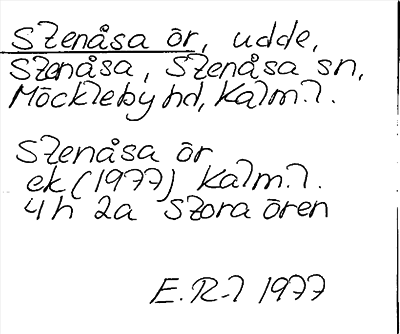 Stenåsa ör, udde,
Stenåsa, Stenåsa sn,
Möckleby hd, Kalm.l.
Stenåsa ör
ek (1977) Kalm.l.
4h 2a Stora ören
E.R-l 1977